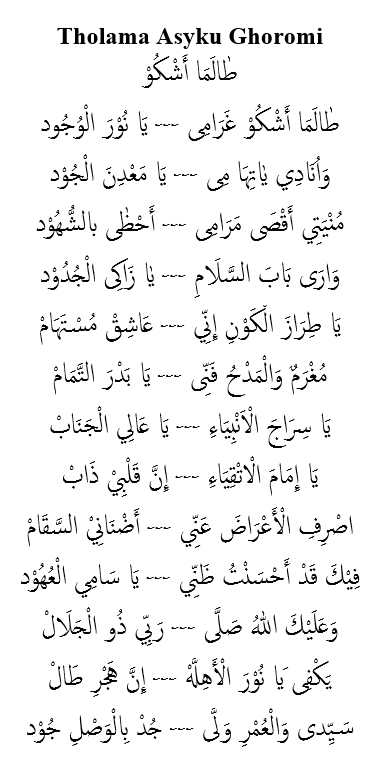 Tholama Asyku Ghoromi
طَالَمَا أَشْكُوْ
طَالَمَا أَشْكُوْ غَرَامِى --- يَا نُوْرَ الْوُجُود
وَاُنَادِي يٰاتِهَا مِى --- يَا مَعْدِنَ الْجُوْد
مُنْيَتِي أَقْصَى مَرَامِى --- أَحْظٰى بالشُّهُوْد
وَارَى بَابَ السَّلَامِ --- يٰا زَاكِى الْجُدُوْد
يَا طِرَازَ الْكَوْنِ إِنِّي --- عَاشِقْ مُسْتَهَامْ
مُغْرَمٌ وَالْمَدْحُ فَنِّى --- يَا بَدْرَ التَّمَامْ
يَا سِرَاجَ الْاَنْبِيَاءِ --- يَا عَالِي الْجَنَابْ
يَا إِمَامَ الْاتْقِيَاءِ --- إِنَّ قَلْبِيْ ذَابْ
اصْرِفِ الْأَعْرَاضَ عَنِّي --- أَضْنَانِيْ السَّقَامْ
فِيْكَ قَدْ أَحْسَنْتُ ظَنِّي --- يَا سَامِي الْعُهُوْد
وَعَلَيْكَ اللهُ صَلَّى --- رَبِّيْ ذُو الْجَلَالْ
يَكْفِى يَا نُوْرَ الْأَهِلَّهْ --- إِنَّ هَجْرِ طَالْ
سَيِّدِى وَالْعُمْرِ وَلَّى --- جُدْ بِالْوَصْلِ جُوْد